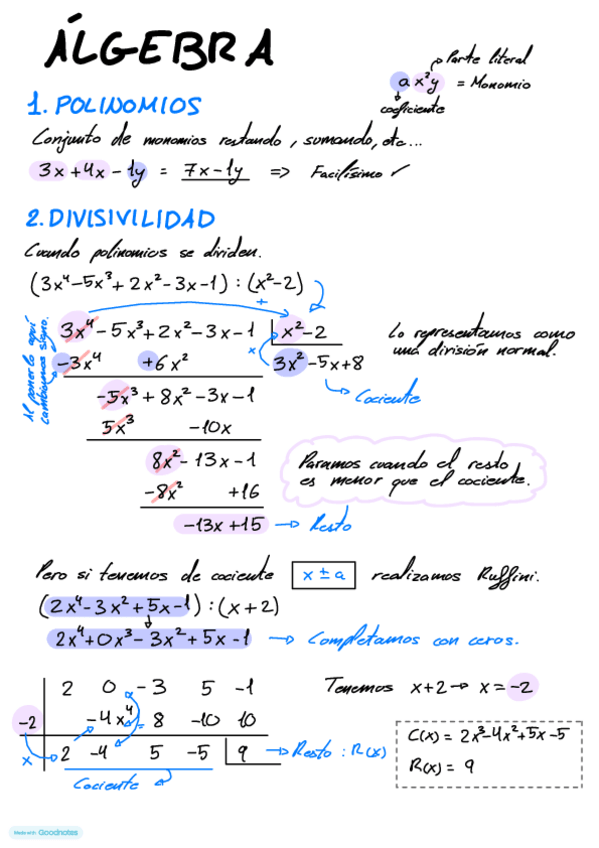 ÁLGEBRA
Parte literal
a x²y = Monomio
coeficiente
1. POLINOMIOS
Conjunto de monomios restando, sumando, etc...
3x + 4x - 1y = 7x - 1y => Facilísimo ✓
2. DIVISIVILIDAD
Cuando polinomios se dividen.
(3x⁴ - 5x³ + 2x² - 3x - 1) : (x² - 2)
+
Al ponerlo aquí
cambiamos signo.
3x⁴ - 5x³ + 2x² - 3x - 1 | x² - 2
x
-3x⁴ +6x² 3x² - 5x + 8
Lo representamos como
una división normal.
Cociente
-5x³ + 8x² - 3x - 1
5x³ -10x
8x² - 13x - 1
-8x² +16
-13x + 15 → Resto
Paramos cuando el resto
es menor que el cociente.
Pero si tenemos de cociente x ± a realizamos Ruffini.
(2x⁴ - 3x² + 5x - 1) : (x + 2)
2x⁴ + 0x³ - 3x² + 5x - 1 → Completamos con ceros.
2 0 -3 5 -1
-2 -4 x⁴ = 8 -10 10
x 2 -4 5 -5 9 → Resto : R(x)
Cociente
Tenemos x + 2 → x = -2
C(x) = 2x³ - 4x² + 5x - 5
R(x) = 9
Made with Goodnotes